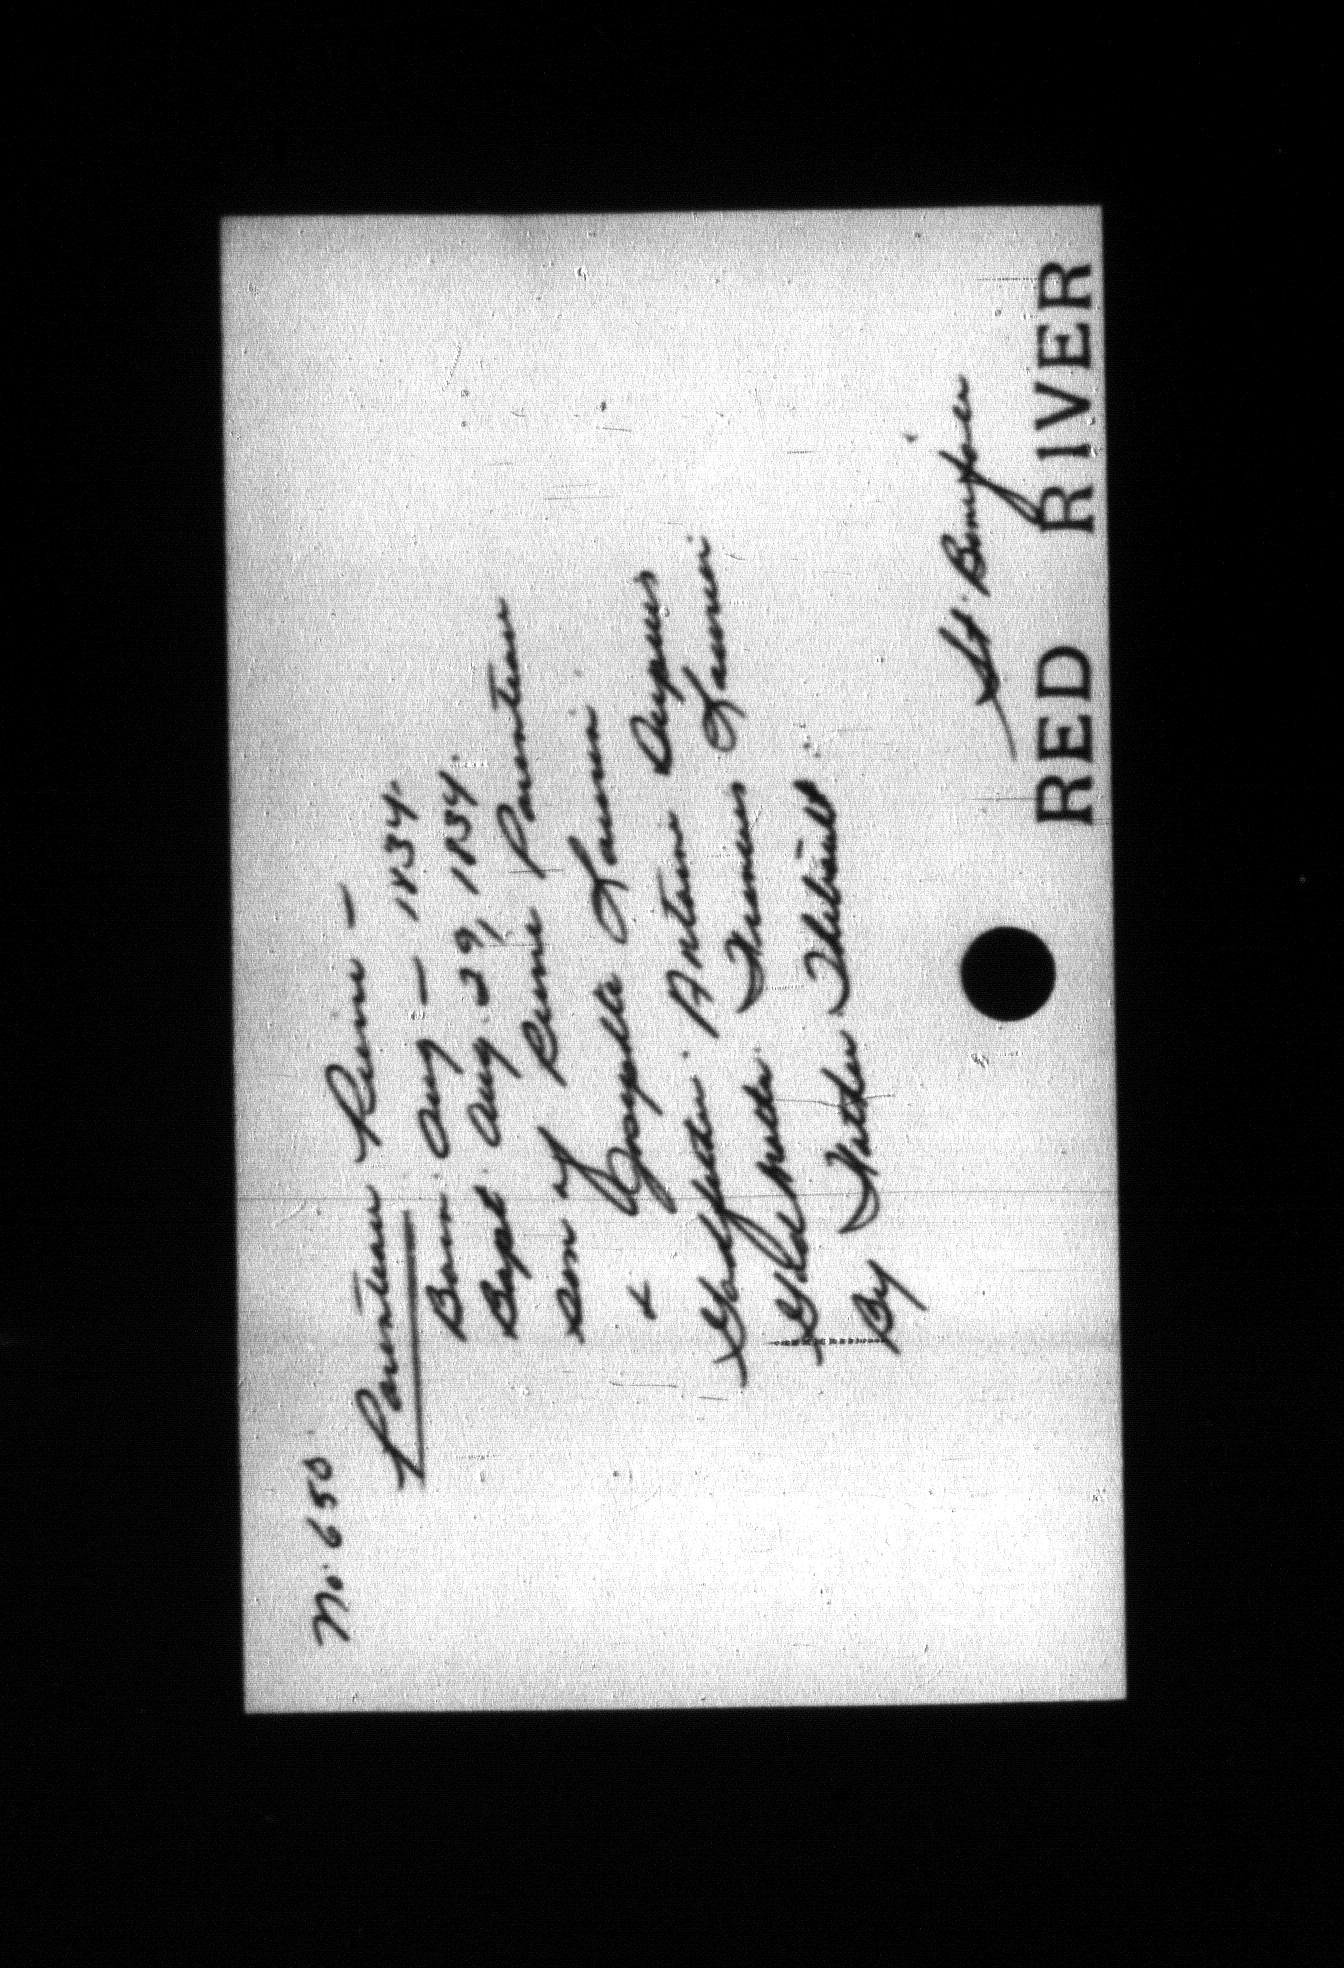 No. 650
Parenteau Pierre —
Born. Aug — 1834.
Bapt. Aug. 29, 1834.
Son of Pierre Parenteau
& Josephte
Godfather. Antoine Dupuis
Godmother. Francois
By Father Thibault.
St. Boniface
RED RIVER